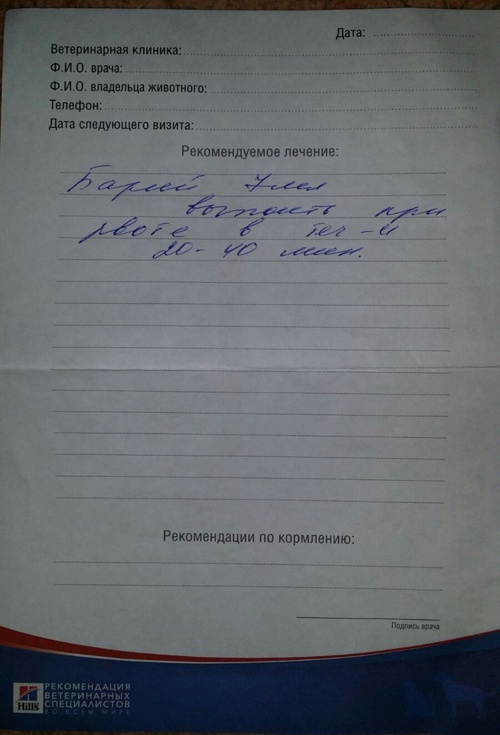 Дата:
Ветеринарная клиника:
Ф.И.О. врача:
Ф.И.О. владельца животного:
Телефон:
Дата следующего визита:
Рекомендуемое лечение:
Барий 7 мл
выпоить при
рвоте в теч-и
20-40 мин.
Рекомендации по кормлению:
Подпись врача
Hill's
РЕКОМЕНДАЦИЯ
ВЕТЕРИНАРНЫХ
СПЕЦИАЛИСТОВ
ВО ВСЕМ МИРЕ